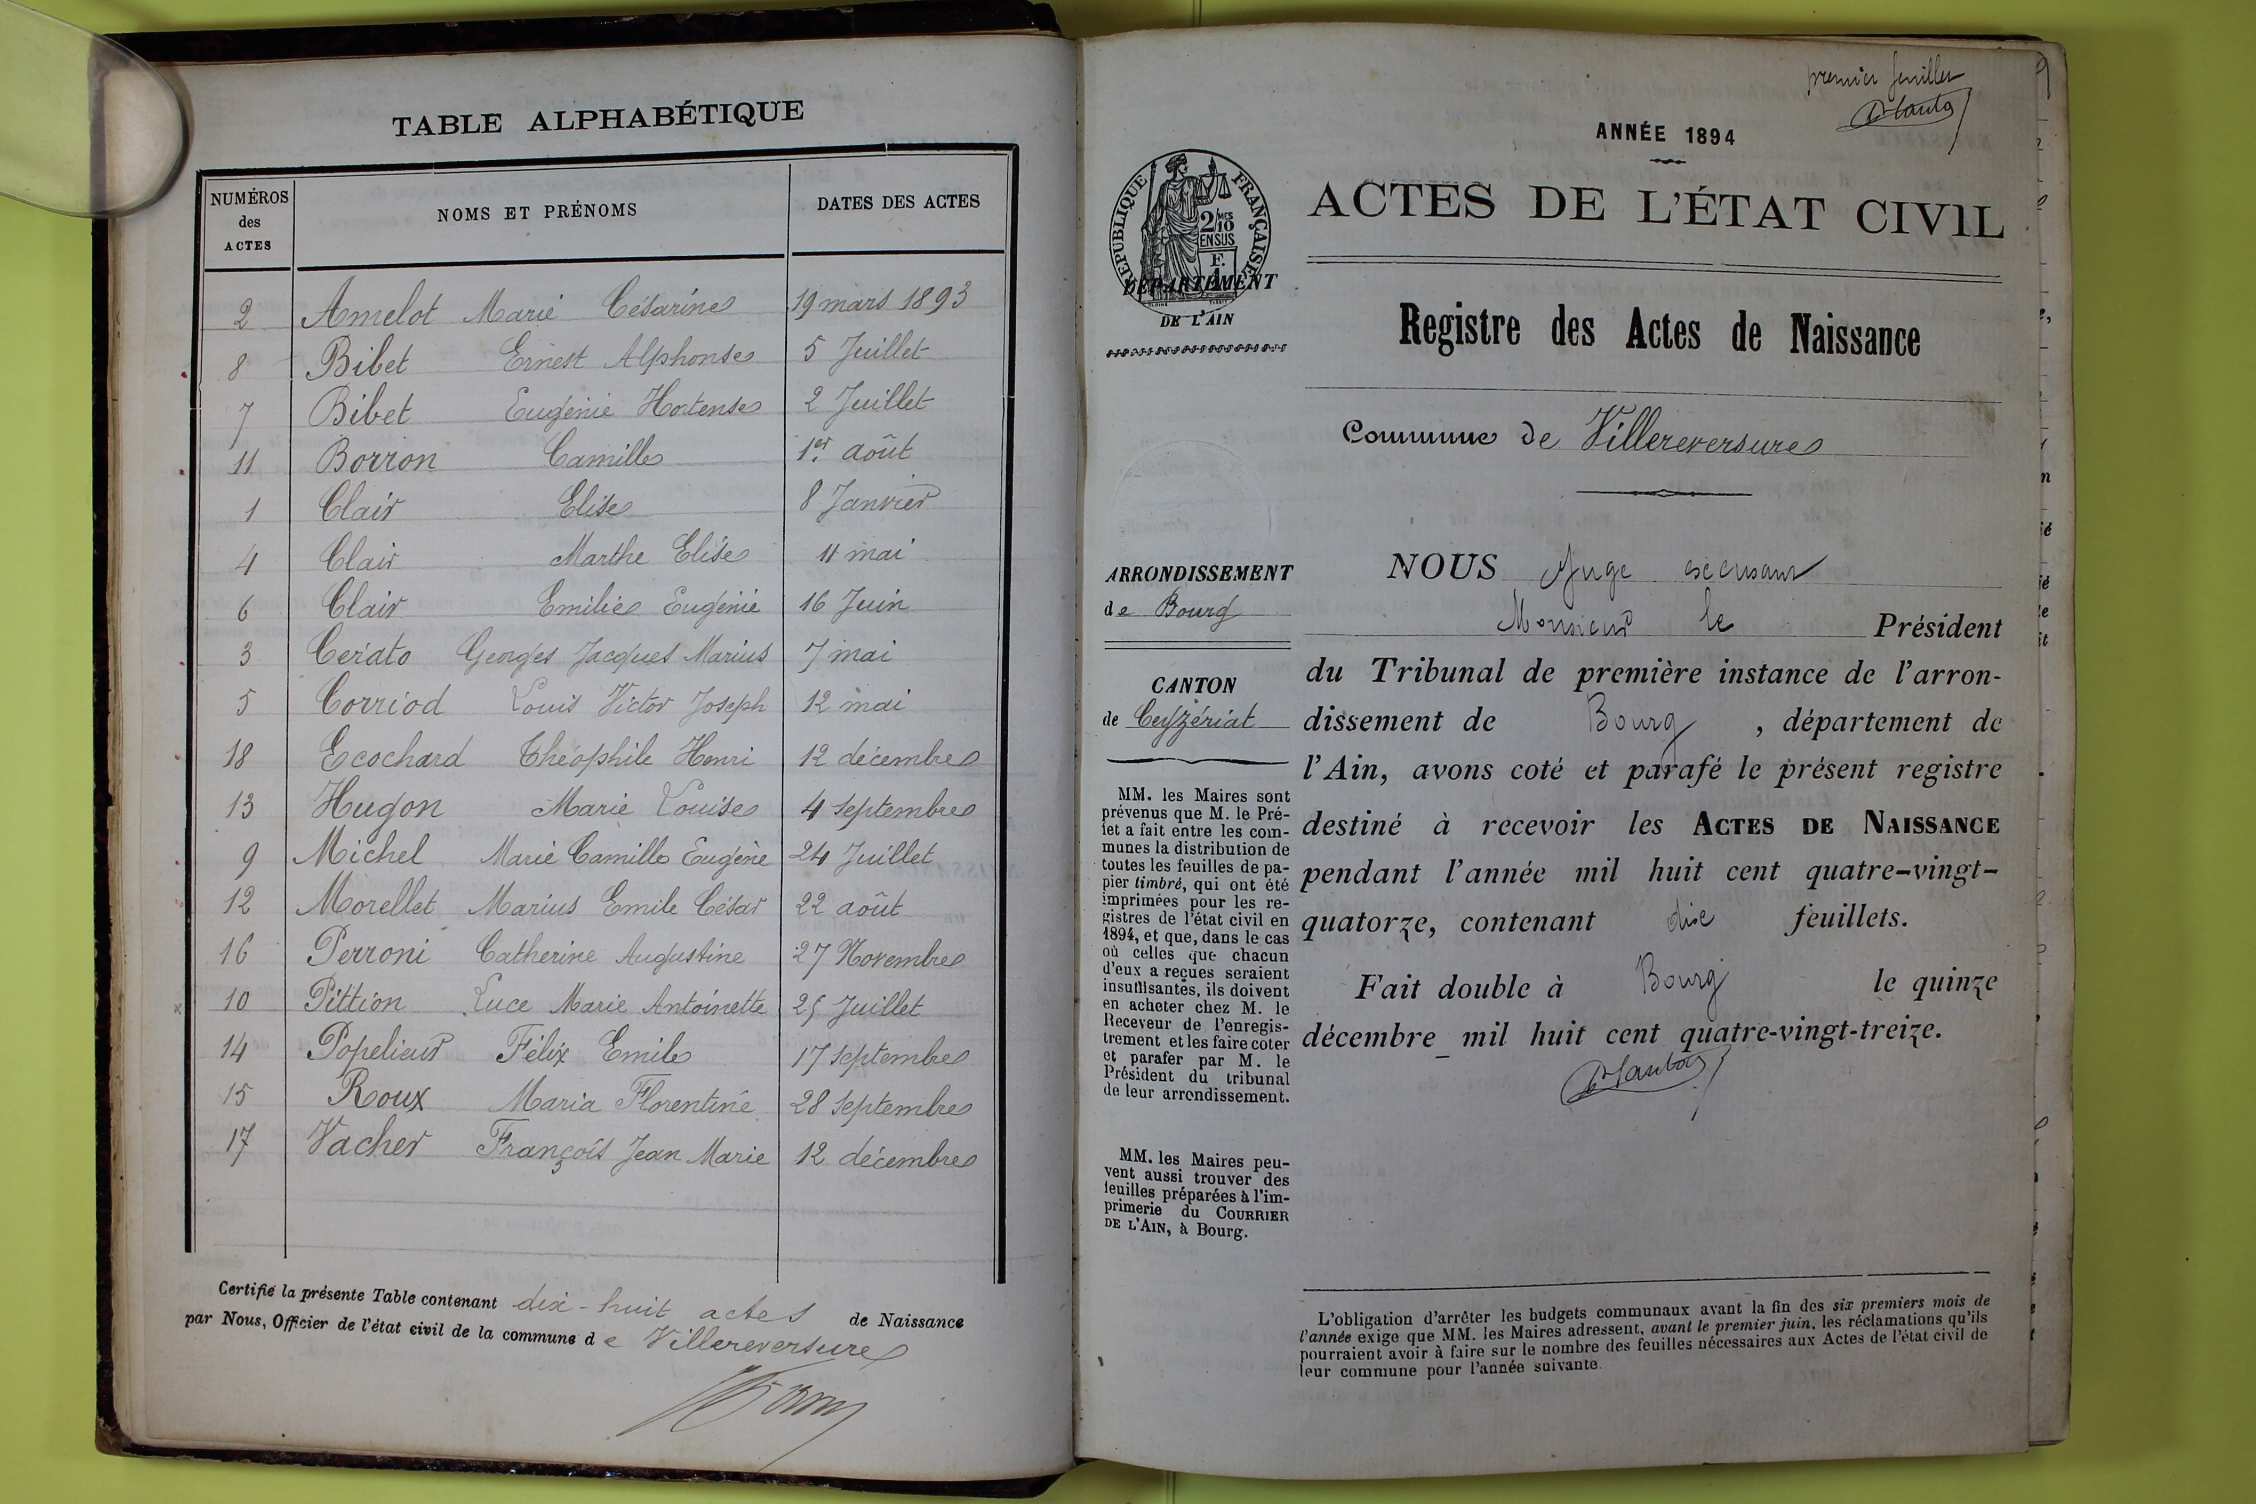 TABLE ALPHABÉTIQUE
NUMÉROS
des
ACTES
NOMS ET PRÉNOMS
DATES DES ACTES
2 Amelot Marie Césarine 19 mars 1893
8 Bibet Ernest Alphonse 5 Juillet
7 Bibet Eugénie Hortense 2 Juillet
11 Borron Camille 1er août
1 Clair Elise 8 Janvier
4 Clair Marthe Elise 11 mai
6 Clair Emilie Eugénie 16 Juin
3 Cerato Georges Jacques Marius 7 mai
5 Corriod Louis Victor Joseph 12 mai
18 Ecochard Théophile Henri 12 décembre
13 Hugon Marie Louise 4 septembre
9 Michel Marie Camille Eugène 24 Juillet
12 Morellet Marius Emile César 22 août
16 Perroni Catherine Augustine 27 Novembre
10 Pittion Luce Marie Antoinette 25 Juillet
14 Popelieur Félix Emile 17 septembre
15 Roux Maria Florentine 28 septembre
17 Vacher François Jean Marie 12 décembre
Certifié la présente Table contenant dix-huit actes de Naissance
par Nous, Officier de l'état civil de la commune de Villereversure
premier feuillet
ANNÉE 1894
RÉPUBLIQUE FRANÇAISE
2/10 MES
EN SUS
F.
DÉPARTEMENT
DE L'AIN
ACTES DE L'ÉTAT CIVIL
Registre des Actes de Naissance
Commune de Villereversure
ARRONDISSEMENT
de Bourg
CANTON
de Ceyzériat
MM. les Maires sont
prévenus que M. le Pré-
fet a fait entre les com-
munes la distribution de
toutes les feuilles de pa-
pier timbré, qui ont été
imprimées pour les re-
gistres de l'état civil en
1894, et que, dans le cas
où celles que chacun
d'eux a reçues seraient
insuffisantes, ils doivent
en acheter chez M. le
Receveur de l'enregis-
trement et les faire coter
et parafer par M. le
Président du tribunal
de leur arrondissement.
MM. les Maires peu-
vent aussi trouver des
feuilles préparées à l'im-
primerie du COURRIER
DE L'AIN, à Bourg.
NOUS Juge excusant
Monsieur le Président
du Tribunal de première instance de l'arron-
dissement de Bourg, département de
l'Ain, avons coté et parafé le présent registre
destiné à recevoir les ACTES DE NAISSANCE
pendant l'année mil huit cent quatre-vingt-
quatorze, contenant dix feuillets.
Fait double à Bourg le quinze
décembre mil huit cent quatre-vingt-treize.
L'obligation d'arrêter les budgets communaux avant la fin des six premiers mois de
l'année exige que MM. les Maires adressent, avant le premier juin, les réclamations qu'ils
pourraient avoir à faire sur le nombre des feuilles nécessaires aux Actes de l'état civil de
leur commune pour l'année suivante.